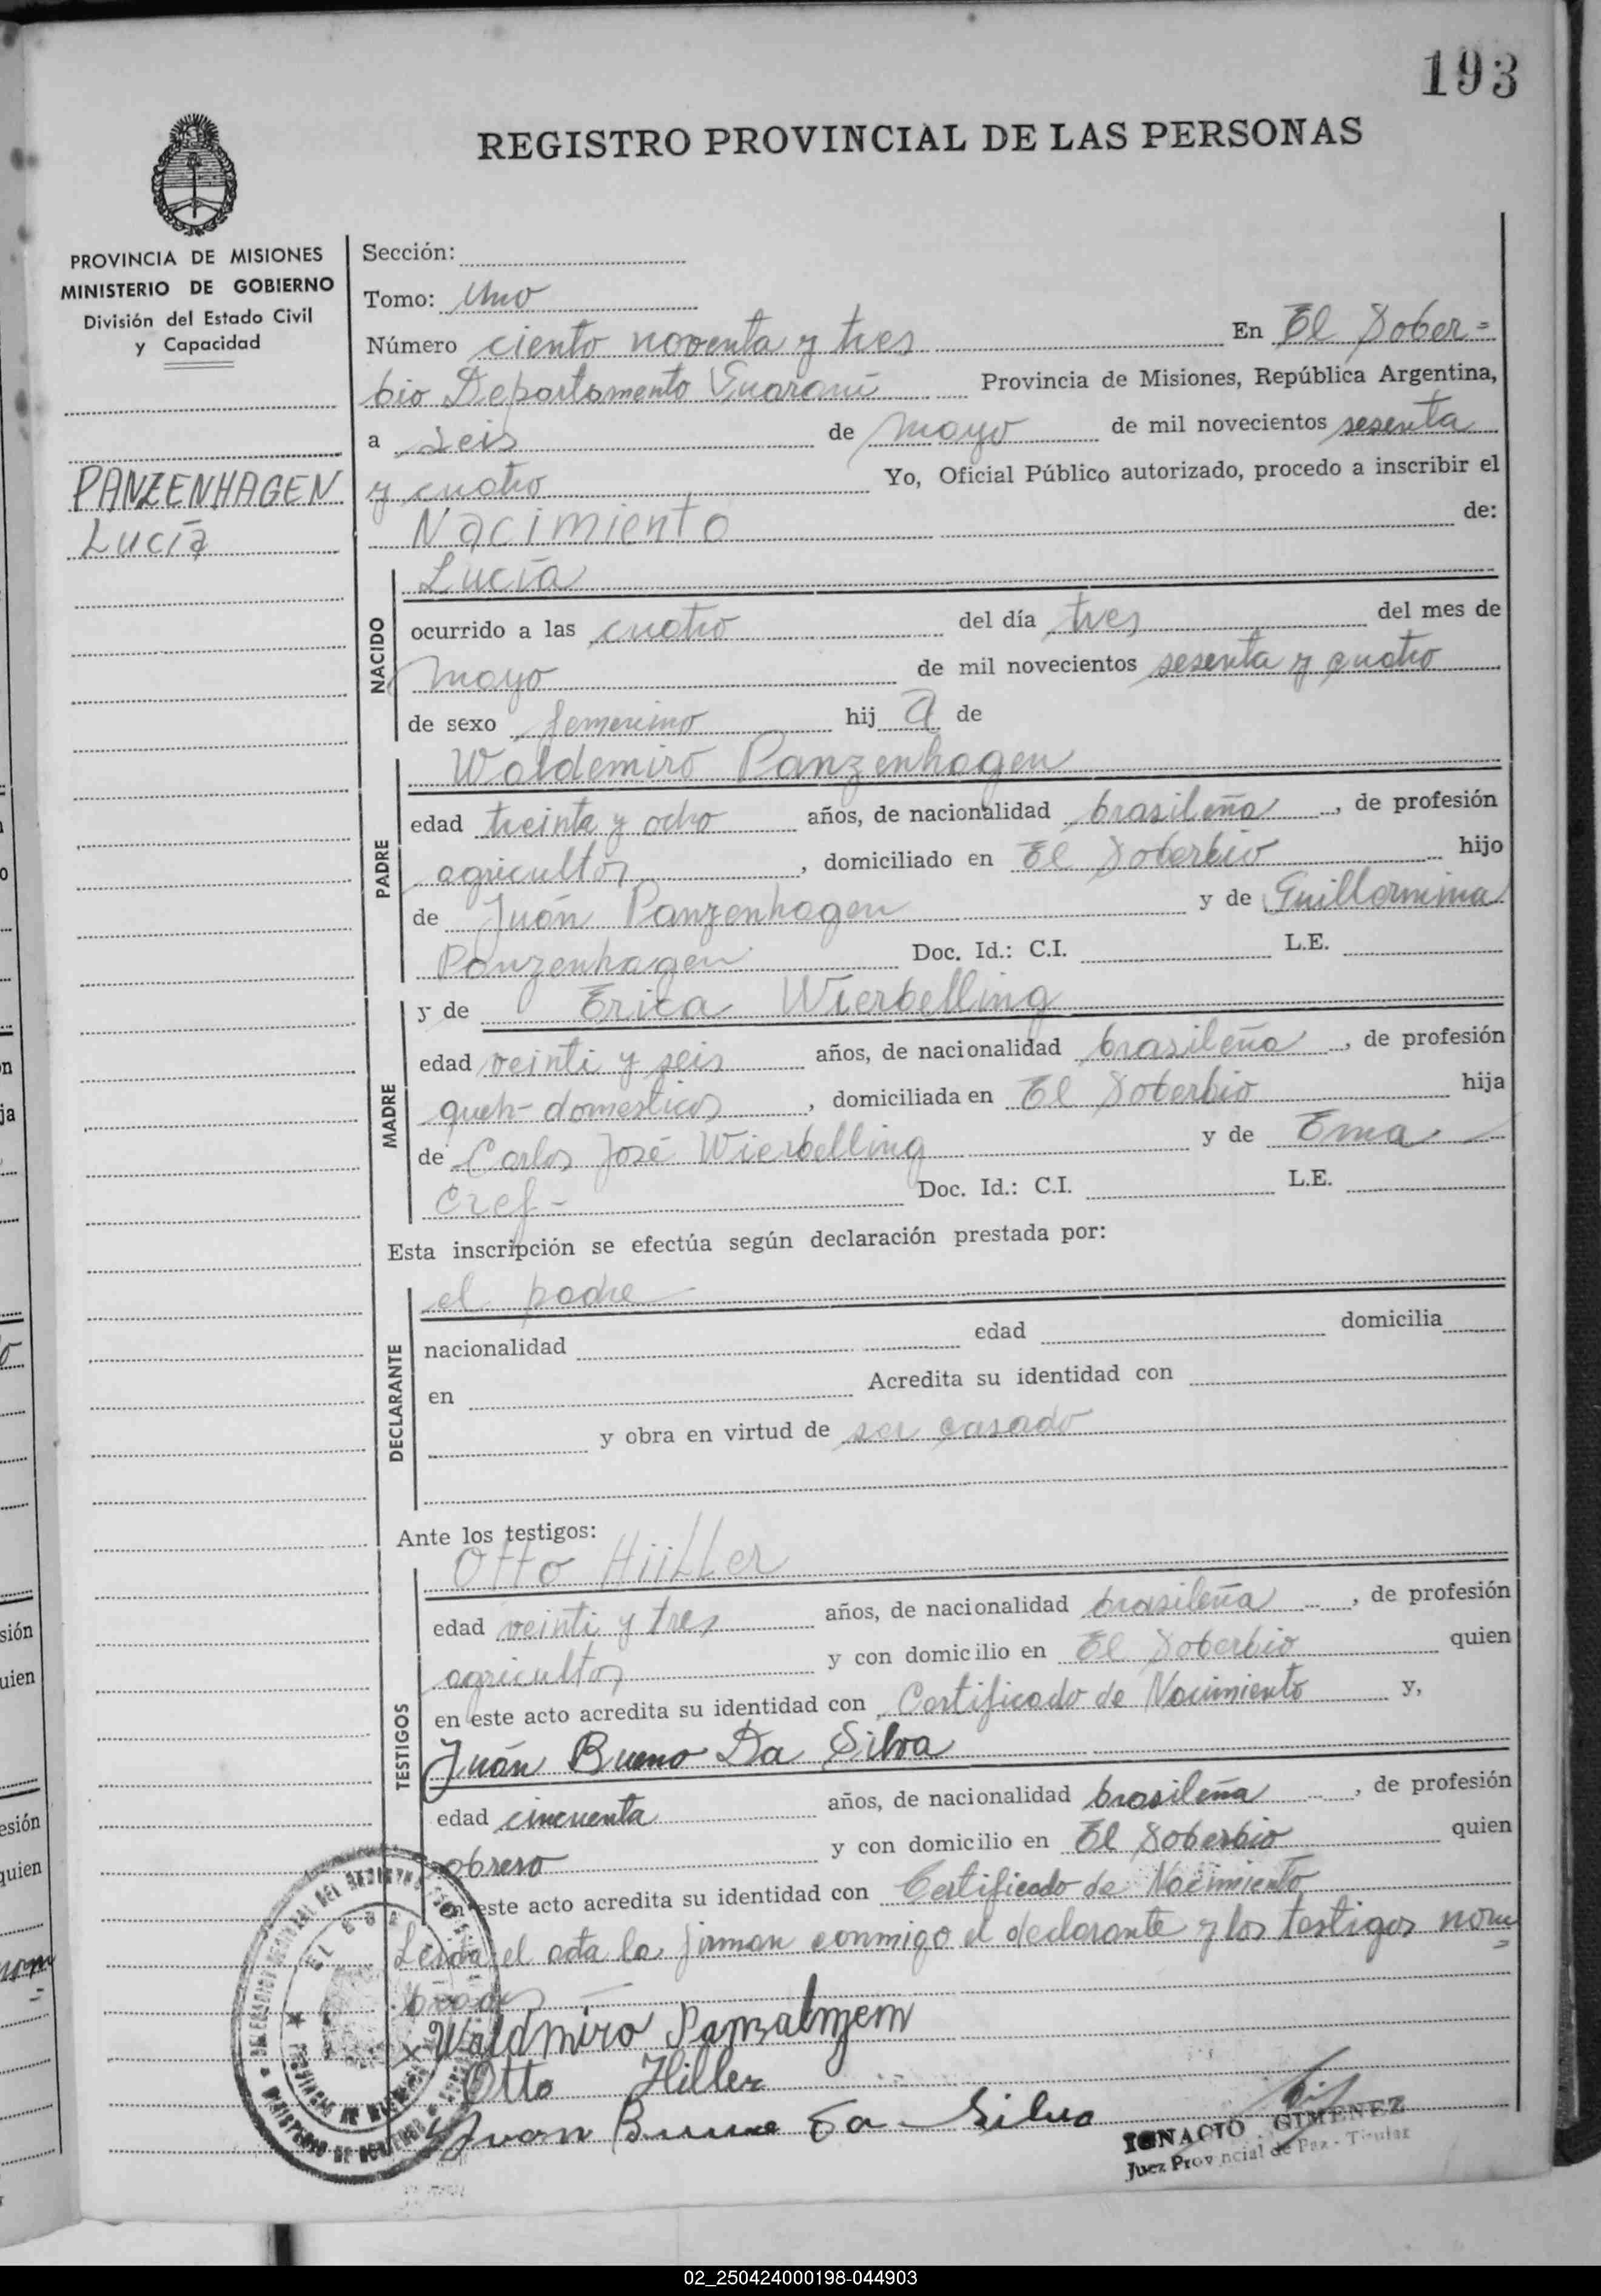 193
REGISTRO PROVINCIAL DE LAS PERSONAS
PROVINCIA DE MISIONES
MINISTERIO DE GOBIERNO
División del Estado Civil
y Capacidad
PANZENHAGEN
Lucía
Sección:
Tomo: Uno
Número ciento noventa y tres En El Sober=
bio Departamento Guaraní Provincia de Misiones, República Argentina,
a seis de mayo de mil novecientos sesenta
y cuatro Yo, Oficial Público autorizado, procedo a inscribir el
Nacimiento de:
NACIDO
Lucía
ocurrido a las cuatro del día tres del mes de
mayo de mil novecientos sesenta y cuatro
de sexo femenino hij a de
PADRE
Waldemiro Panzenhagen
edad treinta y ocho años, de nacionalidad brasileña, de profesión
agricultor, domiciliado en El Soberbio hijo
de Juán Panzenhagen y de Guillermina
Panzenhagen Doc. Id.: C.I. L.E.
MADRE
y de Erica Wierbelling
edad veinti y seis años, de nacionalidad brasileña, de profesión
queh- domesticos, domiciliada en El Soberbio hija
de Carlos José Wierbelling y de Ema
Cref- Doc. Id.: C.I. L.E.
Esta inscripción se efectúa según declaración prestada por:
DECLARANTE
el padre
nacionalidad edad domicilia
en Acredita su identidad con
y obra en virtud de ser casado
Ante los testigos:
TESTIGOS
Otto Hiller
edad veinti y tres años, de nacionalidad brasileña, de profesión
agricultor y con domicilio en El Soberbio quien
en este acto acredita su identidad con Certificado de Nacimiento y,
Juán Bueno Da Silva
edad cincuenta años, de nacionalidad brasileña, de profesión
obrero y con domicilio en El Soberbio quien
en este acto acredita su identidad con Certificado de Nacimiento
Leída el acta la firman conmigo el declarante y los testigos nom=
brados
Waldmiro
Otto Hiller
Juan Da Silva
IGNACIO GIMENEZ
Juez Provincial de Paz - Titular
02_250424000198-044903